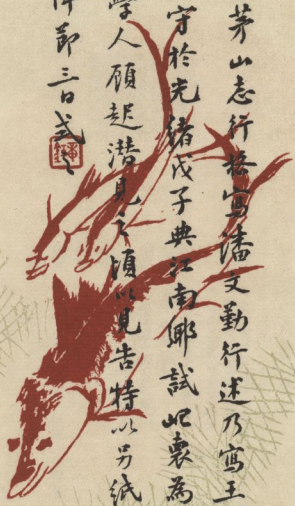 茅山志行格寫潘文勤行述乃寫王
守於光緒戊子典江南鄉試屺懷為
學人顧起潛見之頃以見告特以另紙
節三日式之